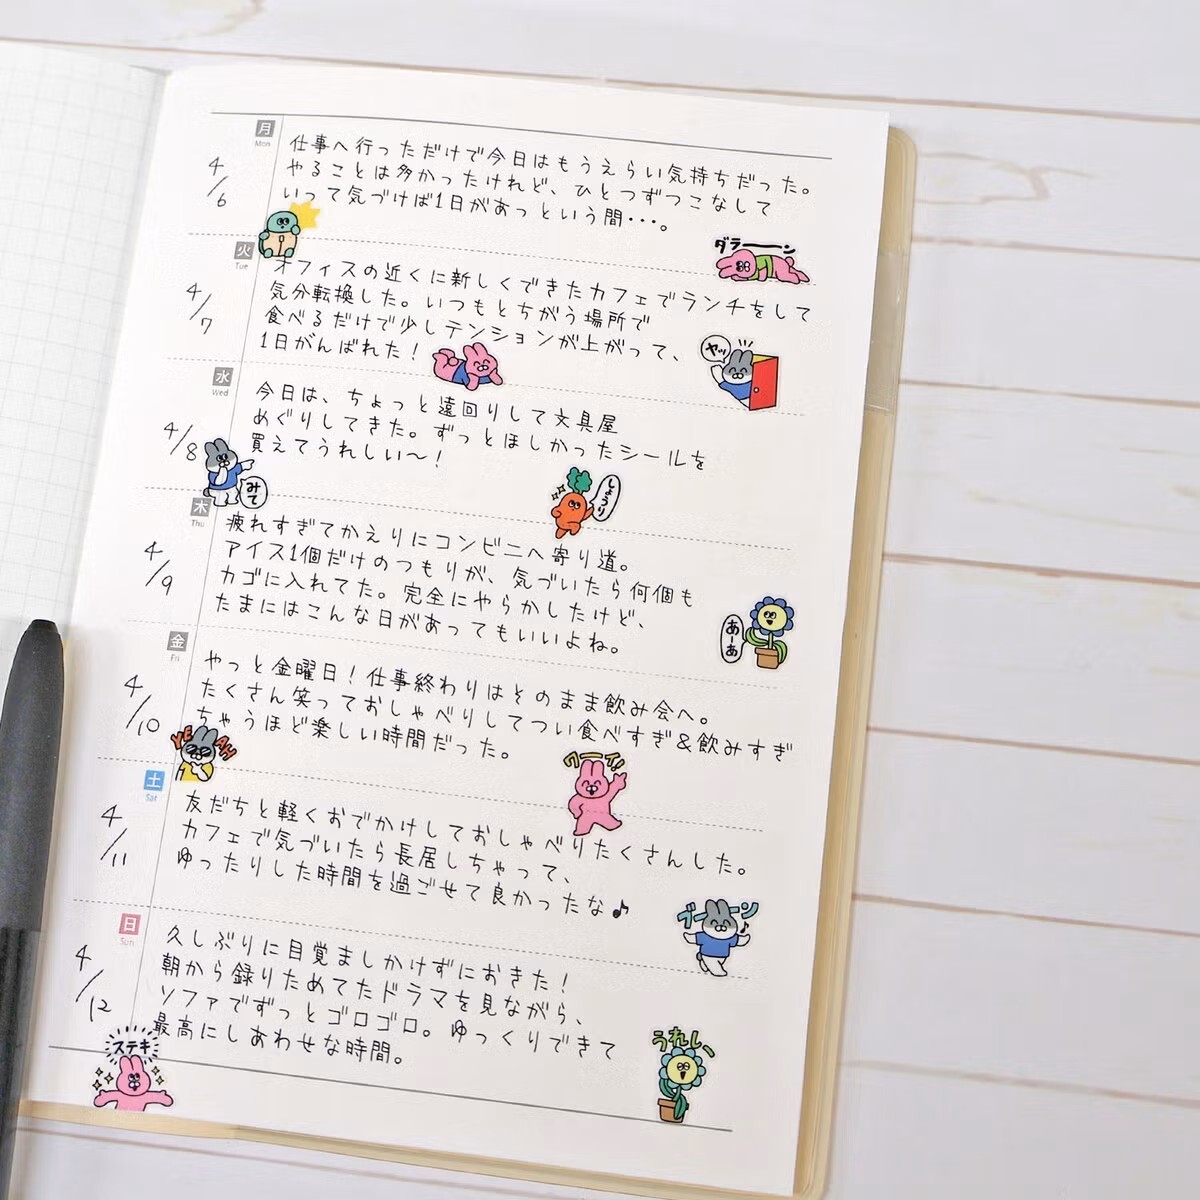 月
Mon
4/6
仕事へ行っただけで今日はもうえらい気持ちだった。
やることは多かったけれど、ひとつずつこなして
いって気づけば1日があっという間・・・。
ダラーーン
火
Tue
4/7
オフィスの近くに新しくできたカフェでランチをして
気分転換した。いつもとちがう場所で
食べるだけで少しテンションが上がって、
1日がんばれた！
ヤッ
水
Wed
4/8
今日は、ちょっと遠回りして文具屋
めぐりしてきた。ずっとほしかったシールを
買えてうれしい〜！
みて
しょうり
木
Thu
4/9
疲れすぎてかえりにコンビニへ寄り道。
アイス1個だけのつもりが、気づいたら何個も
カゴに入れてた。完全にやらかしたけど、
たまにはこんな日があってもいいよね。
あーあ
金
Fri
4/10
やっと金曜日！仕事終わりはそのまま飲み会へ。
たくさん笑っておしゃべりしてつい食べすぎ＆飲みすぎ
ちゃうほど楽しい時間だった。
YEAH
ワーイ!
土
Sat
4/11
友だちと軽くおでかけしておしゃべりたくさんした。
カフェで気づいたら長居しちゃって、
ゆったりした時間を過ごせて良かったな♪
日
Sun
4/12
久しぶりに目覚ましかけずにおきた！
朝から録りためてたドラマを見ながら、
ソファでずっとゴロゴロ。ゆっくりできて
最高にしあわせな時間。
ステキ
うれしい